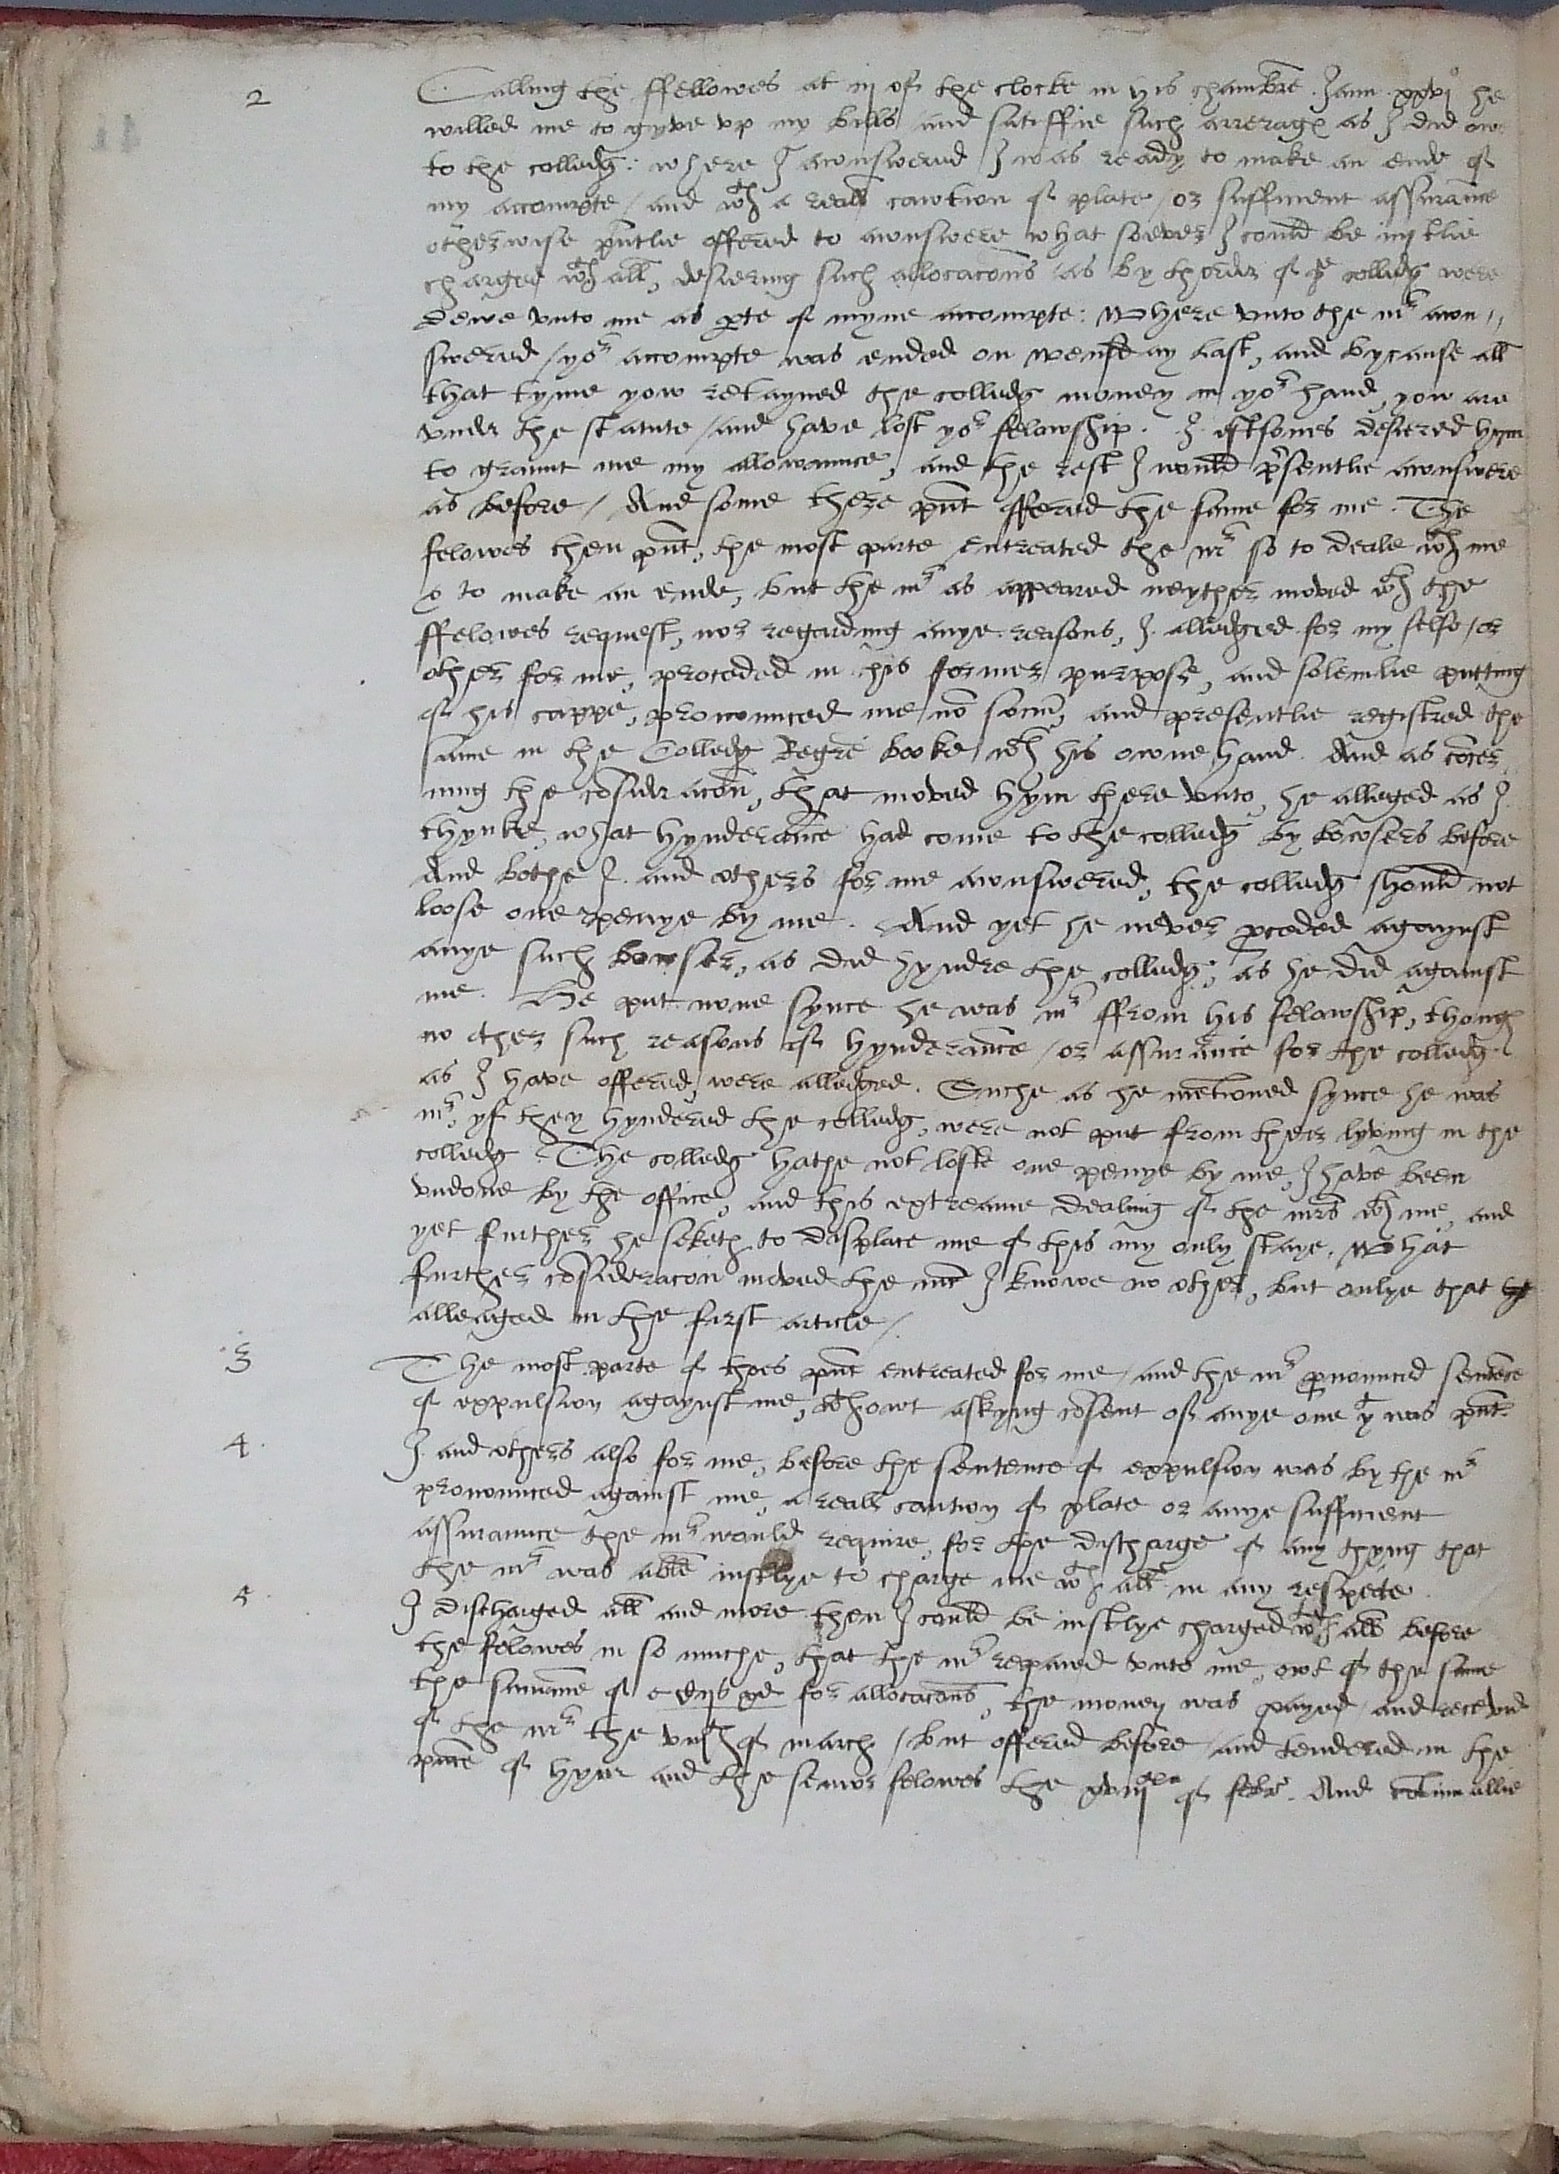 2 Calling the ffellowes at iij of the clocke in his chambre Janu. xxvjº he
willed me to gyve vp my bills and satisffie such arreragε as I did owe
to the colledg: where I awnswered I was ready to make an ende of
my accompte / and wth a reall cawtion of plate / or sufficient assurance
otherwise pntlie offered to awnswere what soever I could be iustlie
charged wth all, desiering such allocacons / as by thorder of ye colledg were
dewe vnto me as pte of myne accompte: Where vnto the mr awn,,
swered / yor accompte was ended on wensday last, and bycause all
that tyme yow retayned the colledg money in yor hand, yow are
vnder the statute / and have lost yor felowship. I eftsones desiered hym
to graunt me my allowaunce, and the rest I would p̃sentlie awnswere
as before / And some there pnt offered the same for me. The
felowes then pnt, the most parte entreated the mr so to deale wth me
& to make an ende, but the mr as appeared neyther moved wth the
ffelowes request, nor regarding anye reasons, I alledged for my selfe / or
other for me, proceded in his former purpose, and solemlie putting
of his cappe, pronounced me nō sociū, and presentlie registred the
same in the Colledg Regre booke wth his owne hand. And as cōcer,
ning the cōsideracon, that moved hym there vnto, he alleged as I
thynke, what hynderance had come to the colledg by bowsers before
And bothe I. and others for me awnswered, the colledg should not
loose one penye by me. And yet he never pceded agaynst
anye such bowser, as did hyndre the colledg, as he did against
me. He put none synce he was mr ffrom his felowship, though
no other such reasons of hynderance / or assurance for the colledg
as I have offered, were alledged. Suche as he mētioned synce he was
mr, yf they hyndered the colledg, were not put from their lyving in the
colledg. The colledg hathe not loste one penye by me, I have been
vndone by the office, and this extreame dealing of the mrs wth me, and
yet further he seketh to displace me of this my only staye. What
further cōsideracon moved the mr I knowe no other, but onlye that he
alleaged in the first article /
3 The most parte of thoes pnt entreated for me / and the mr pnounced sentēce
of expulsion agaynst me, wthowt askyng cōsent of anye one yt was pnt.
4. I and others also for me, before the sentence of expulsion was by the mr
pronounced against me, a reall caution of plate or anye sufficient
assuraunce the mr would require, for the discharge of any thyng that
the mr was able iustlye to charge me wth all in any respecte.
5. I discharged all and more then I could be iustlye charged wth all before
the felowes in so muche, that the mr repaied vnto me, owt of the same
the summe of for allocacons, the money was payed / and receved
of the mr the viijth of march / but offered before / and tendered in the
pnce of hym and the senior felowes the xviijth of febr. And cōtinuallie